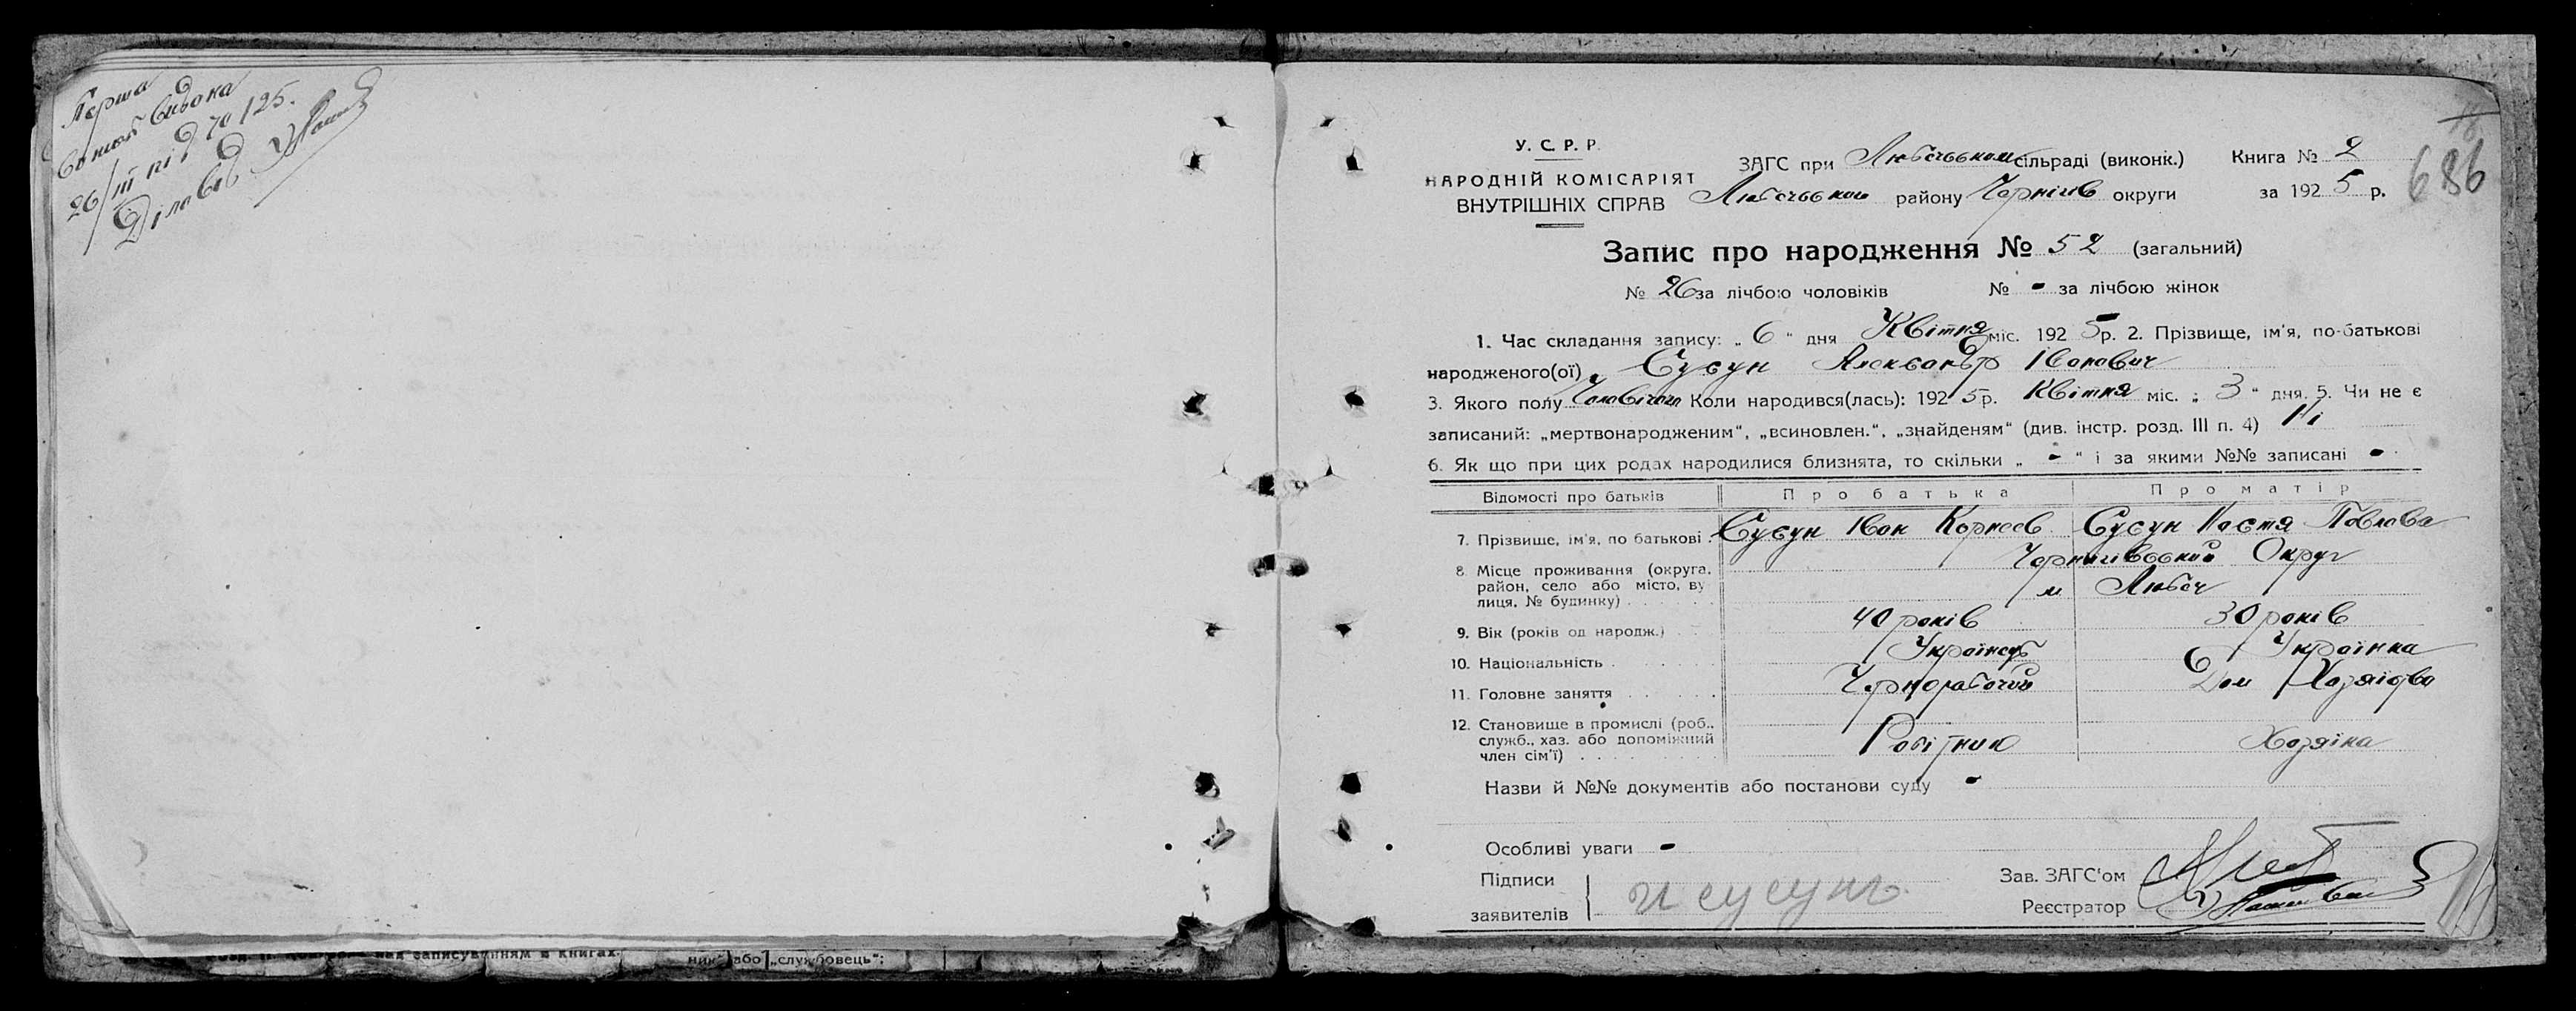 Перша
26/III під 70/25.
Діловод
18
686
У. С. Р. Р.
НАРОДНІЙ КОМІСАРІЯТ
ВНУТРІШНІХ СПРАВ
ЗАГС при Любечському сільраді (виконк.) Книга № 2
Любечського району Чернігів округи за 1925 р.
Запис про народження № 52 (загальний)
№ 26 за лічбою чоловіків № - за лічбою жінок
1. Час складання запису: „ 6 “ дня Квітня міс. 1925 р. 2. Прізвище, ім'я, по-батькові
народженого(ої) Сусун Александр Іванович
3. Якого полу Чоловічого Коли народився(лась): 1925 р. Квітня міс. „ 3 “ дня. 5. Чи не є
записаний: „мертвонародженим“, „всиновлен.“, „знайденям“ (див. інстр. розд. III п. 4) Ні
6. Як що при цих родах народилися близнята, то скільки „ - “ і за якими №№ записані -
Відомості про батьків Про батька Про матір
7. Прізвище, ім'я, по батькові . Сусун Іван Корнеев Сусун Настя Павлова
8. Місце проживання (округа, район, село або місто, вулиця, № будинку) . . . . . .
Чернигівський Округ
м Любеч
9. Вік (років од народж.) . . 40 років 30 років
10. Національність . . . . . . Українець Українка
11. Головне заняття . . . . . . Чернорабочий Дом Хозяіство
12. Становище в промислі (роб., служб., хаз. або допоміжний член сім'ї) . . . . . . . . . Робітник Хозяіка
Назви й №№ документів або постанови суду -
Особливі уваги -
Підписи
заявителів
и сусунъ
Зав. ЗАГС'ом
Реєстратор
над записуванням в книгах.
ник“ або „службовець“;